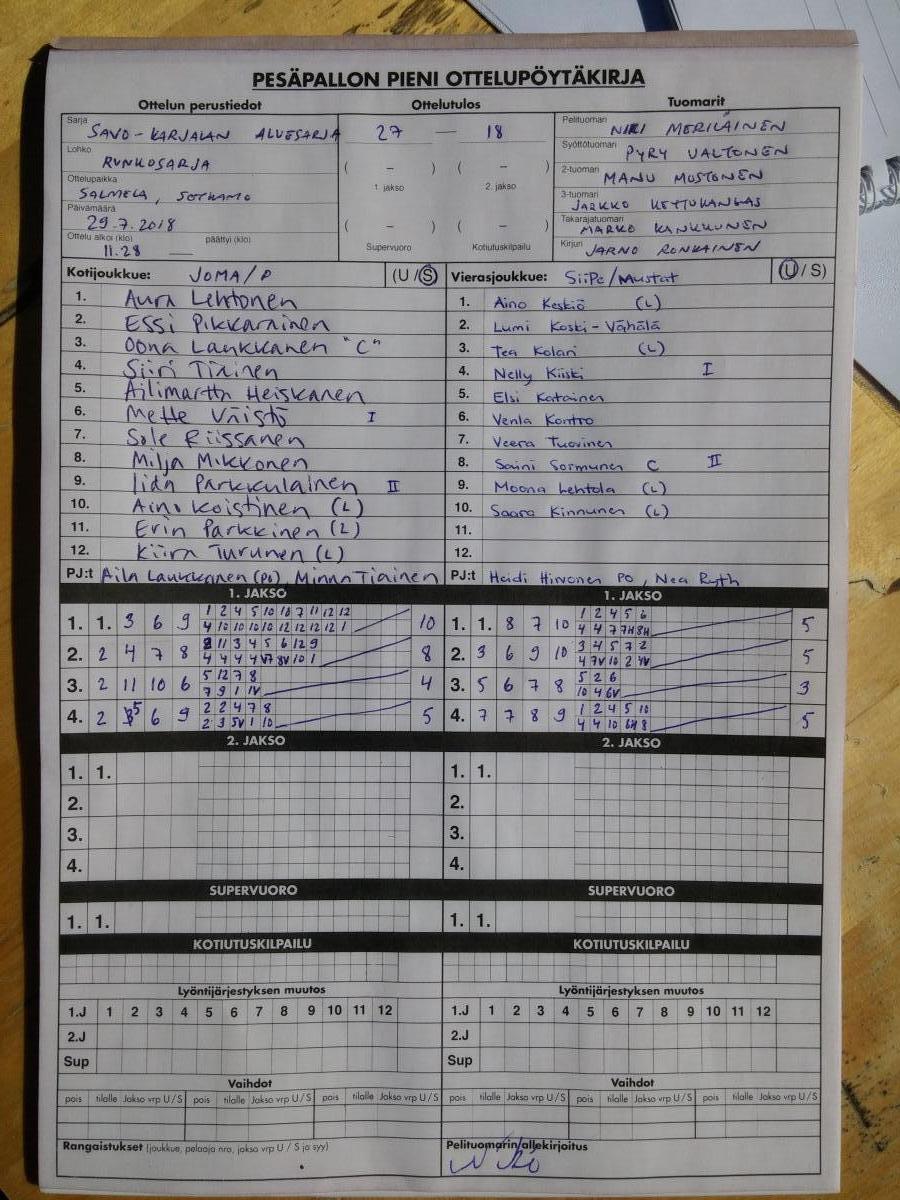 PESÄPALLON PIENI OTTELUPÖYTÄKIRJA
Ottelun perustiedot Ottelutulos Tuomarit
Sarja SAVO-KARJALAN ALUESARJA
Lohko RUNKOSARJA
Ottelupaikka SALMELA, SOTKAMO
Päivämäärä 29.7.2018
Ottelu alkoi (klo) 11.28 päättyi (klo)
27 — 18
( – ) ( – )
1. jakso 2. jakso
( – ) ( – )
Supervuoro Kotiutuskilpailu
Pelituomari NIKI MERILÄINEN
Syöttötuomari PYRY VALTONEN
2-tuomari MANU MUSTONEN
3-tuomari JARKKO KETTUKANGAS
Takarajatuomari MARKO KANKKUNEN
Kirjuri JARNO RONKAINEN
Kotijoukkue: JOMA/P (U/S)
1. Aura Lehtonen
2. Essi Pikkarainen
3. Oona Laukkanen "C"
4. Siiri Tiainen
5. Ailimartta Heiskanen
6. Mette Väistö I
7. Sole Riissanen
8. Milja Mikkonen
9. Iida Parkkulainen II
10. Aino Koistinen (L)
11. Erin Parkkinen (L)
12. Kiira Turunen (L)
PJ:t Aila Laukkanen (PO), Minna Tiainen
Vierasjoukkue: SiiPe/Mustat (U/S)
1. Aino Keskiö (L)
2. Lumi Koski-Vähälä
3. Tea Kolari (L)
4. Nelly Kiiski I
5. Elsi Katainen
6. Venla Kontro
7. Veera Tuovinen
8. Saini Sormunen C II
9. Moona Lehtola (L)
10. Saara Kinnunen (L)
11.
12.
PJ:t Heidi Hirvonen PO, Nea Ryth
1. JAKSO
1. 1. 3 6 9 1 2 4 5 10 10 7 11 12 12 10
4 10 10 10 10 12 12 12 12 1
2. 2 4 7 8 11 3 4 5 6 12 9 8
4 4 4 4 8V 10 1
3. 2 11 10 6 5 12 7 8 4
7 9 1 1V
4. 2 6 9 2 2 4 7 8 5
2 3 5V 1 10
1. JAKSO
1. 1. 8 7 10 1 2 4 5 6 5
4 4 7 7H 8H
2. 3 6 9 10 3 4 5 7 2 5
4 7V 10 2 4V
3. 5 6 7 8 5 2 6 3
10 4 6V
4. 7 7 8 9 1 2 4 5 10 5
4 4 10 6H 8
2. JAKSO
1. 1.
2.
3.
4.
2. JAKSO
1. 1.
2.
3.
4.
SUPERVUORO SUPERVUORO
1. 1. 1. 1.
KOTIUTUSKILPAILU KOTIUTUSKILPAILU
Lyöntijärjestyksen muutos Lyöntijärjestyksen muutos
1.J 1 2 3 4 5 6 7 8 9 10 11 12 1.J 1 2 3 4 5 6 7 8 9 10 11 12
2.J 2.J
Sup Sup
Vaihdot Vaihdot
pois tilalle Jakso vrp U/S pois tilalle Jakso vrp U/S pois tilalle Jakso vrp U/S pois tilalle Jakso vrp U/S pois tilalle Jakso vrp U/S pois tilalle Jakso vrp U/S
Rangaistukset (joukkue, pelaaja nro, jakso vrp U / S ja syy) Pelituomarin allekirjoitus